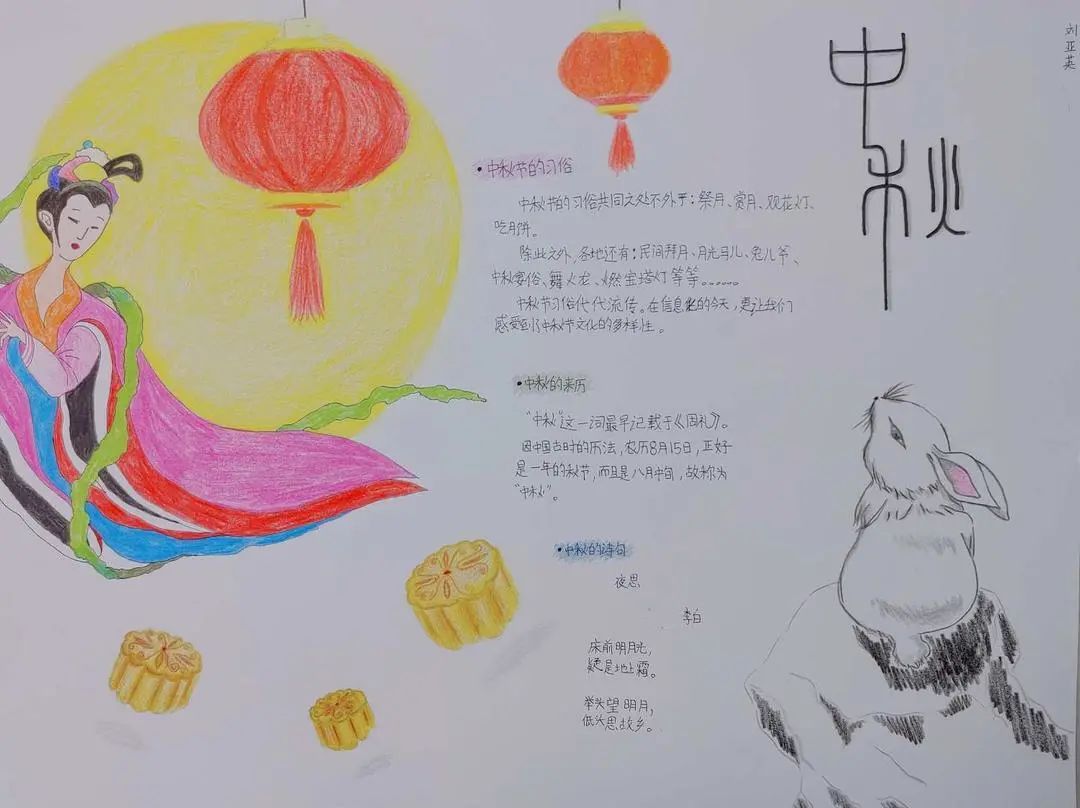 刘亚英
中秋
•中秋节的习俗
中秋节的习俗共同之处不外于:祭月、赏月、观花灯、
吃月饼。
除此之外,各地还有:民间拜月、月光马儿、兔儿爷、
中秋宴俗、舞火龙、燃宝塔灯等等。。。。。。
中秋节习俗代代流传。在信息化的今天,更让我们
感受到了中秋节文化的多样性。
•中秋的来历
“中秋”这一词最早记载于《周礼》。
因中国古时的历法,农历8月15日,正好
是一年的秋节,而且是八月中旬,故称为
“中秋”。
•中秋的诗句
夜思
李白
床前明月光,
疑是地上霜。
举头望明月,
低头思故乡。